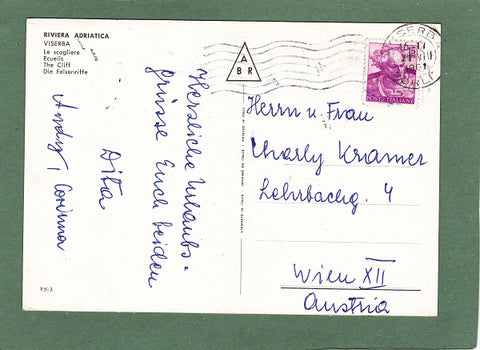 RIVIERA ADRIATICA
VISERBA
Le scogliere
Ecueils
The Cliff
Die Felsenriffe
Herzliche Urlaubs-
grüsse Euch beiden
Dita
Andy, Corinna
VS:3
A
BR
VISERBA
POSTE ITALIANE
Herrn u. Frau
Charly Kramer
Lehrbachg. 4
Wien XII
Austria